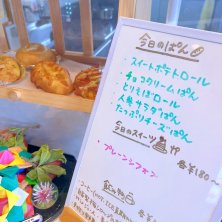 今日のぱん
・スイートポテトロール
・チョコクリームぱん
・とりそぼロール
・人参サラダぱん
・たっぷりチーズぱん
今日のスイーツ
・プレーンシフォン
各¥180
飲み物